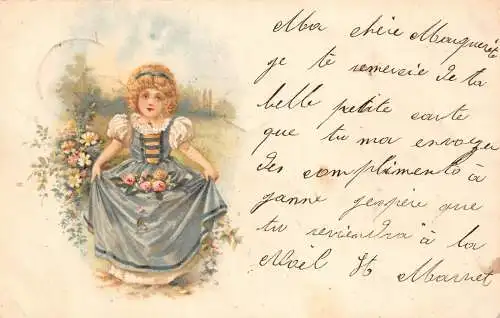 Ma chère Margueritte
je te remercie de ta
belle petite carte
que tu ma envoyer
des compliments à
jeanne j'espère que
tu reviendra à la
Noël